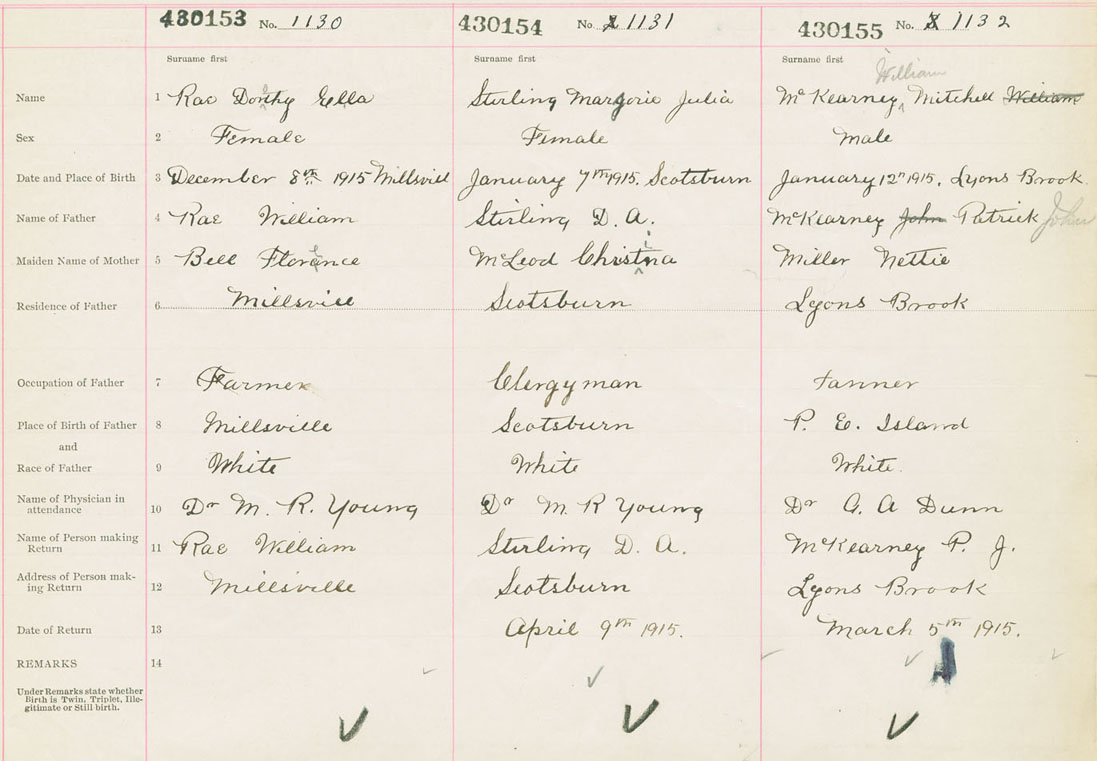 430153 No. 1130 430154 No. 1131 430155 No. 1132
Surname first Surname first Surname first
William
Name 1 Rae Dorothy Ella Sterling Marjorie Julia McKearney Mitchell William
Sex 2 Female Female Male
Date and Place of Birth 3 December 8th 1915 Millsvill January 7th 1915. Scotsburn January 12th 1915. Lyons Brook.
Name of Father 4 Rae William Stirling D. A. McKearney John Patrick John
Maiden Name of Mother 5 Bell Florence McLeod Christina Miller Nettie
Residence of Father 6 Millsvill Scotsburn Lyons Brook
Occupation of Father 7 Farmer Clergyman Tanner
Place of Birth of Father 8 Millsville Scotsburn P. E. Island
and
Race of Father 9 White White White.
Name of Physician in
attendance 10 Dr M. R. Young Dr M. R Young Dr G. A Dunn
Name of Person making
Return 11 Rae William Stirling D. A. McKearney P. J.
Address of Person mak-
ing Return 12 Millsville Scotsburn Lyons Brook
Date of Return 13 April 9th 1915. March 5th 1915.
REMARKS 14
Under Remarks state whether
Birth is Twin, Triplet, Ille-
gitimate or Still birth.